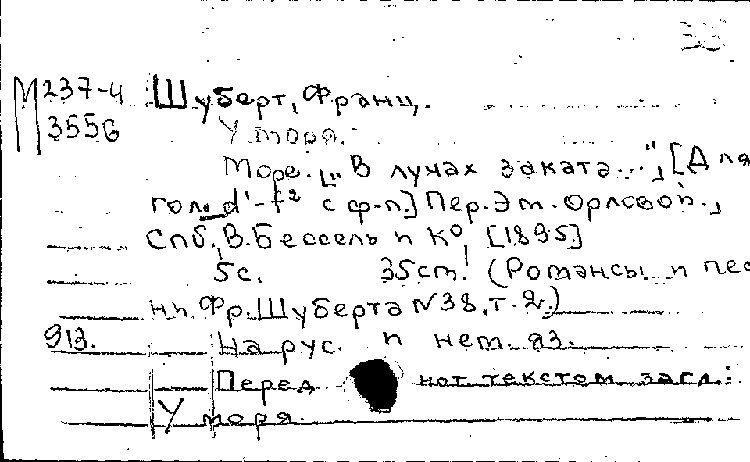 38
М237-4 Шуберт, Франц.
3556 У моря.
Море. „В лучах заката...", [Для
гол. d¹-f² с ф-п.] Пер. Эм. Орловой.,
Спб., В. Бессель и К°, [1895]
5с. 35ст. (Романсы и пес
ни. Фр. Шуберта N38, т. 2.)
913. На рус. и нем. яз.
Перед нот текстом загл.:
У моря.